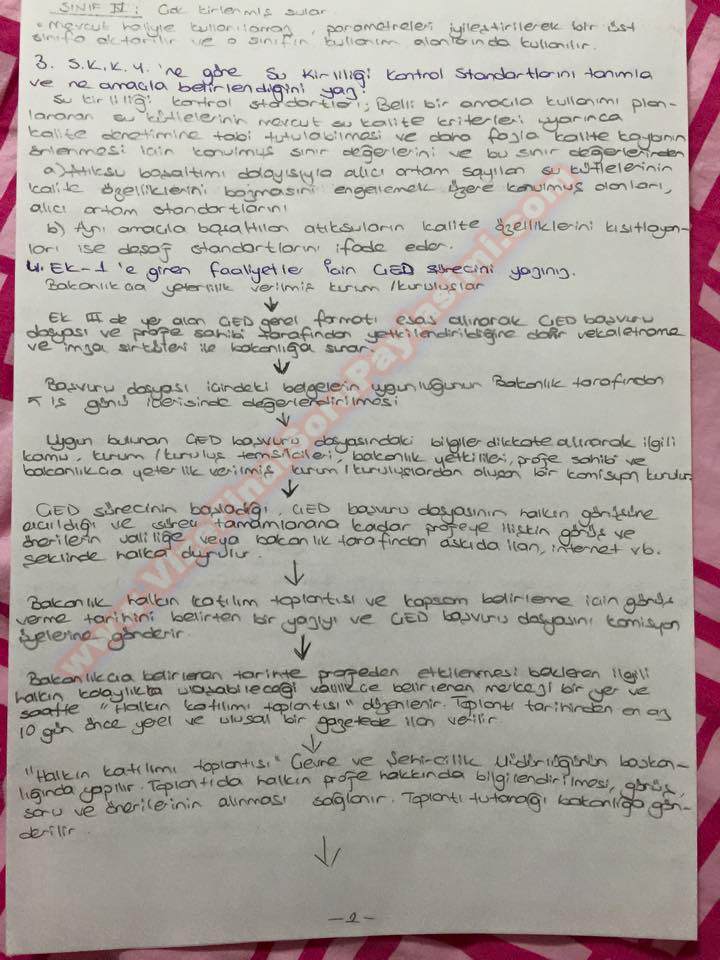 SINIF IV : Çok kirlenmiş sular
* Mevcut haliyle kullanılamaz, parametreleri iyileştirilerek bir üst
sınıfa aktarılır ve o sınıfın kullanım alanlarında kullanılır.
3. S.K.K.Y.'ne göre Su Kirliliği Kontrol Standartlarını tanımla
ve ne amaçla belirlendiğini yaz.
Su kirliliği kontrol standartları; Belli bir amaçla kullanımı plan-
lanan su kütlelerinin mevcut su kalite kriterleri uyarınca
kalite denetimine tabi tutulabilmesi ve daha fazla kalite kaybının
önlenmesi için konulmuş sınır değerlerini ve bu sınır değerlerinden
a) Atıksu boşaltımı dolayısıyla alıcı ortam sayılan su kütlelerinin
kalite özelliklerini bozmasını engelemek üzere konulmuş olanları,
alıcı ortam standartlarını
b) Aynı amaçla boşaltılan atıksuların kalite özelliklerini kısıtlayan-
ları ise deşarj standartlarını ifade eder.
4. Ek-1'e giren faaliyetler için ÇED sürecini yazınız.
Bakanlıkça yeterlilik verilmiş kurum/kuruluşlar
↓
Ek III de yer alan ÇED genel formatı esas alınarak ÇED başvuru
dosyası ve proje sahibi tarafından yetkilendirildiğine dair vekaletname
ve imza sirküleri ile bakanlığa sunar.
↓
Başvuru dosyası içindeki belgelerin uygunluğunun Bakanlık tarafından
iş günü içerisinde değerlendirilmesi
↓
Uygun bulunan ÇED başvuru dosyasındaki bilgiler dikkate alınarak ilgili
kamu, kurum/kuruluş temsilcileri, bakanlık yetkilileri, proje sahibi ve
bakanlıkça yeterlik verilmiş kurum/kuruluşlardan oluşan bir komisyon kurulur.
↓
ÇED sürecinin başladığı, ÇED başvuru dosyasının halkın görüşüne
açıldığı ve süreç tamamlanana kadar projeye ilişkin görüş ve
önerilerin valiliğe veya bakanlık tarafından askıda ilan, internet vb.
şeklinde halka duyrulur.
↓
Bakanlık halkın katılım toplantısı ve kapsam belirleme için görüş
verme tarihini belirten bir yazıyı ve ÇED başvuru dosyasını komisyon
üyelerine gönderir.
↓
Bakanlıkça belirlenen tarihte projeden etkilenmesi beklenen ilgili
halkın kolaylıkta ulaşabileceği valilikçe belirlenen merkezi bir yer ve
saatte "Halkın katılımı toplantısı" düzenlenir. Toplantı tarihinden en az
10 gün önce yerel ve ulusal bir gazetede ilan verilir.
↓
"Halkın katılımı toplantısı" Çevre ve Şehircilik Müdürlüğünün başkan-
lığında yapılır. Toplantıda halkın proje hakkında bilgilendirilmesi, görüş,
soru ve önerilerinin alınması sağlanır. Toplantı tutanağı bakanlığa gön-
derilir.
↓
-2-
www.VizeFinalSoruPaylasimi.com